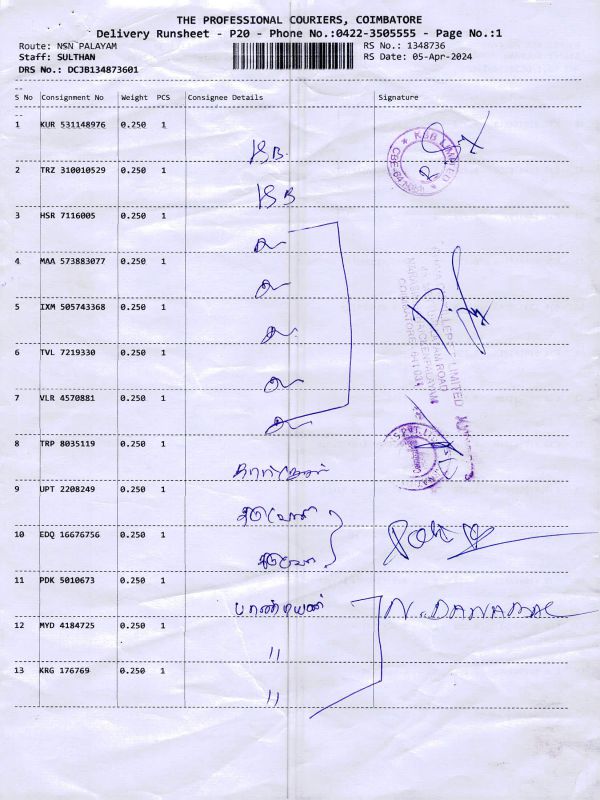 THE PROFESSIONAL COURIERS, COIMBATORE
Delivery Runsheet - P20 - Phone No.:0422-3505555 - Page No.:1
Route: NSN PALAYAM
RS No.: 1348736
Staff: SULTHAN
RS Date: 05-Apr-2024
DRS No.: DCJB134873601
--
S No Consignment No Weight PCS Consignee Details Signature
--
1 KUR 531148976 0.250 1
KSB
KSB LIMITED
2 TRZ 310010529 0.250 1
KSB
3 HSR 7116005 0.250 1
4 MAA 573883077 0.250 1
5 IXM 505743368 0.250 1
6 TVL 7219330 0.250 1
LIMITED
ROAD
7 VLR 4570881 0.250 1
8 TRP 8035119 0.250 1
9 UPT 2208249 0.250 1
10 EDQ 16676756 0.250 1
11 PDK 5010673 0.250 1
பாண்டியன் N. DANAPAL
12 MYD 4184725 0.250 1
"
13 KRG 176769 0.250 1
"